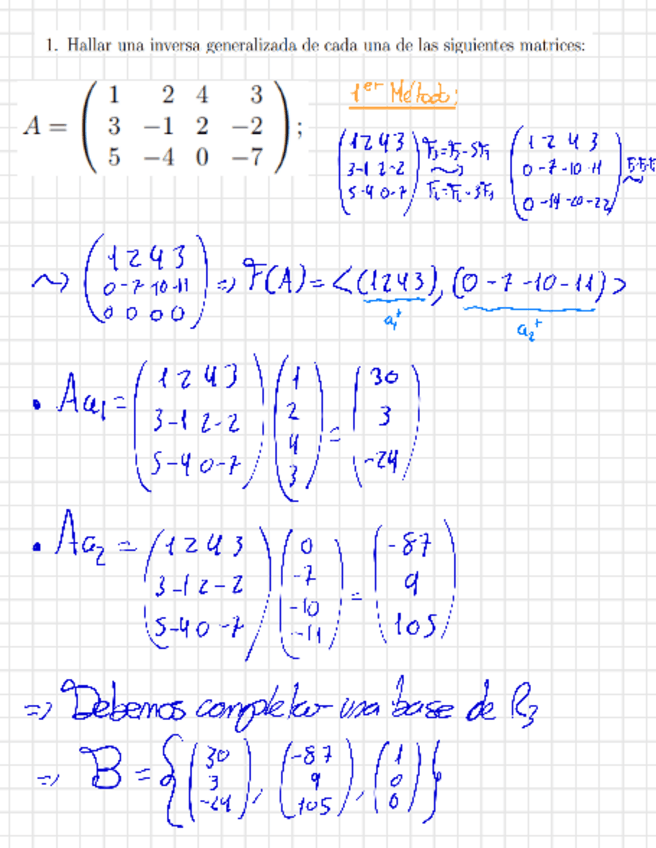 1. Hallar una inversa generalizada de cada una de las siguientes matrices:
1er Método:
A = ( 1 2 4 3 ; 3 −1 2 −2 ; 5 −4 0 −7 ) ;
( 1 2 4 3 ; 3 -1 2 -2 ; 5 -4 0 -7 ) F3=F3-5F1 ~> F2=F2-3F1 ( 1 2 4 3 ; 0 -7 -10 -11 ; 0 -14 -20 -22 ) ~>
~> ( 1 2 4 3 ; 0 -7 -10 -11 ; 0 0 0 0 ) => F(A) = <(1 2 4 3), (0 -7 -10 -11)>
a1+ a2+
• Aa1 = ( 1 2 4 3 ; 3 -1 2 -2 ; 5 -4 0 -7 ) ( 1 ; 2 ; 4 ; 3 ) = ( 30 ; 3 ; -24 )
• Aa2 = ( 1 2 4 3 ; 3 -1 2 -2 ; 5 -4 0 -7 ) ( 0 ; -7 ; -10 ; -11 ) = ( -87 ; 9 ; 105 )
=> Debemos completar una base de R3
=> B = { ( 30 ; 3 ; -24 ), ( -87 ; 9 ; 105 ), ( 1 ; 0 ; 0 ) }